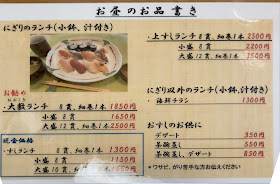 お昼のお品書き
にぎりのランチ(小鉢、汁付き)
お勧め
・大穀ランチ 8貫、細巻1本 1850円
小盛 8貫 1650円
大盛 12貫、細巻1本 2500円
現金価格
・すしランチ 8貫、細巻1本 1300円
小盛 8貫 1100円
大盛 10貫、細巻1本 1560円
・上すしランチ 8貫、細巻1本 2500円
小盛 8貫 2200円
大盛 10貫 1500円
にぎり以外のランチ(小鉢、汁付き)
・海鮮チラシ 1300円
おすしのお供に
・デザート 350円
・茶碗蒸し 550円
・茶碗蒸し、デザート 850円
*ワサビ、ガリ苦手な方お伝えください